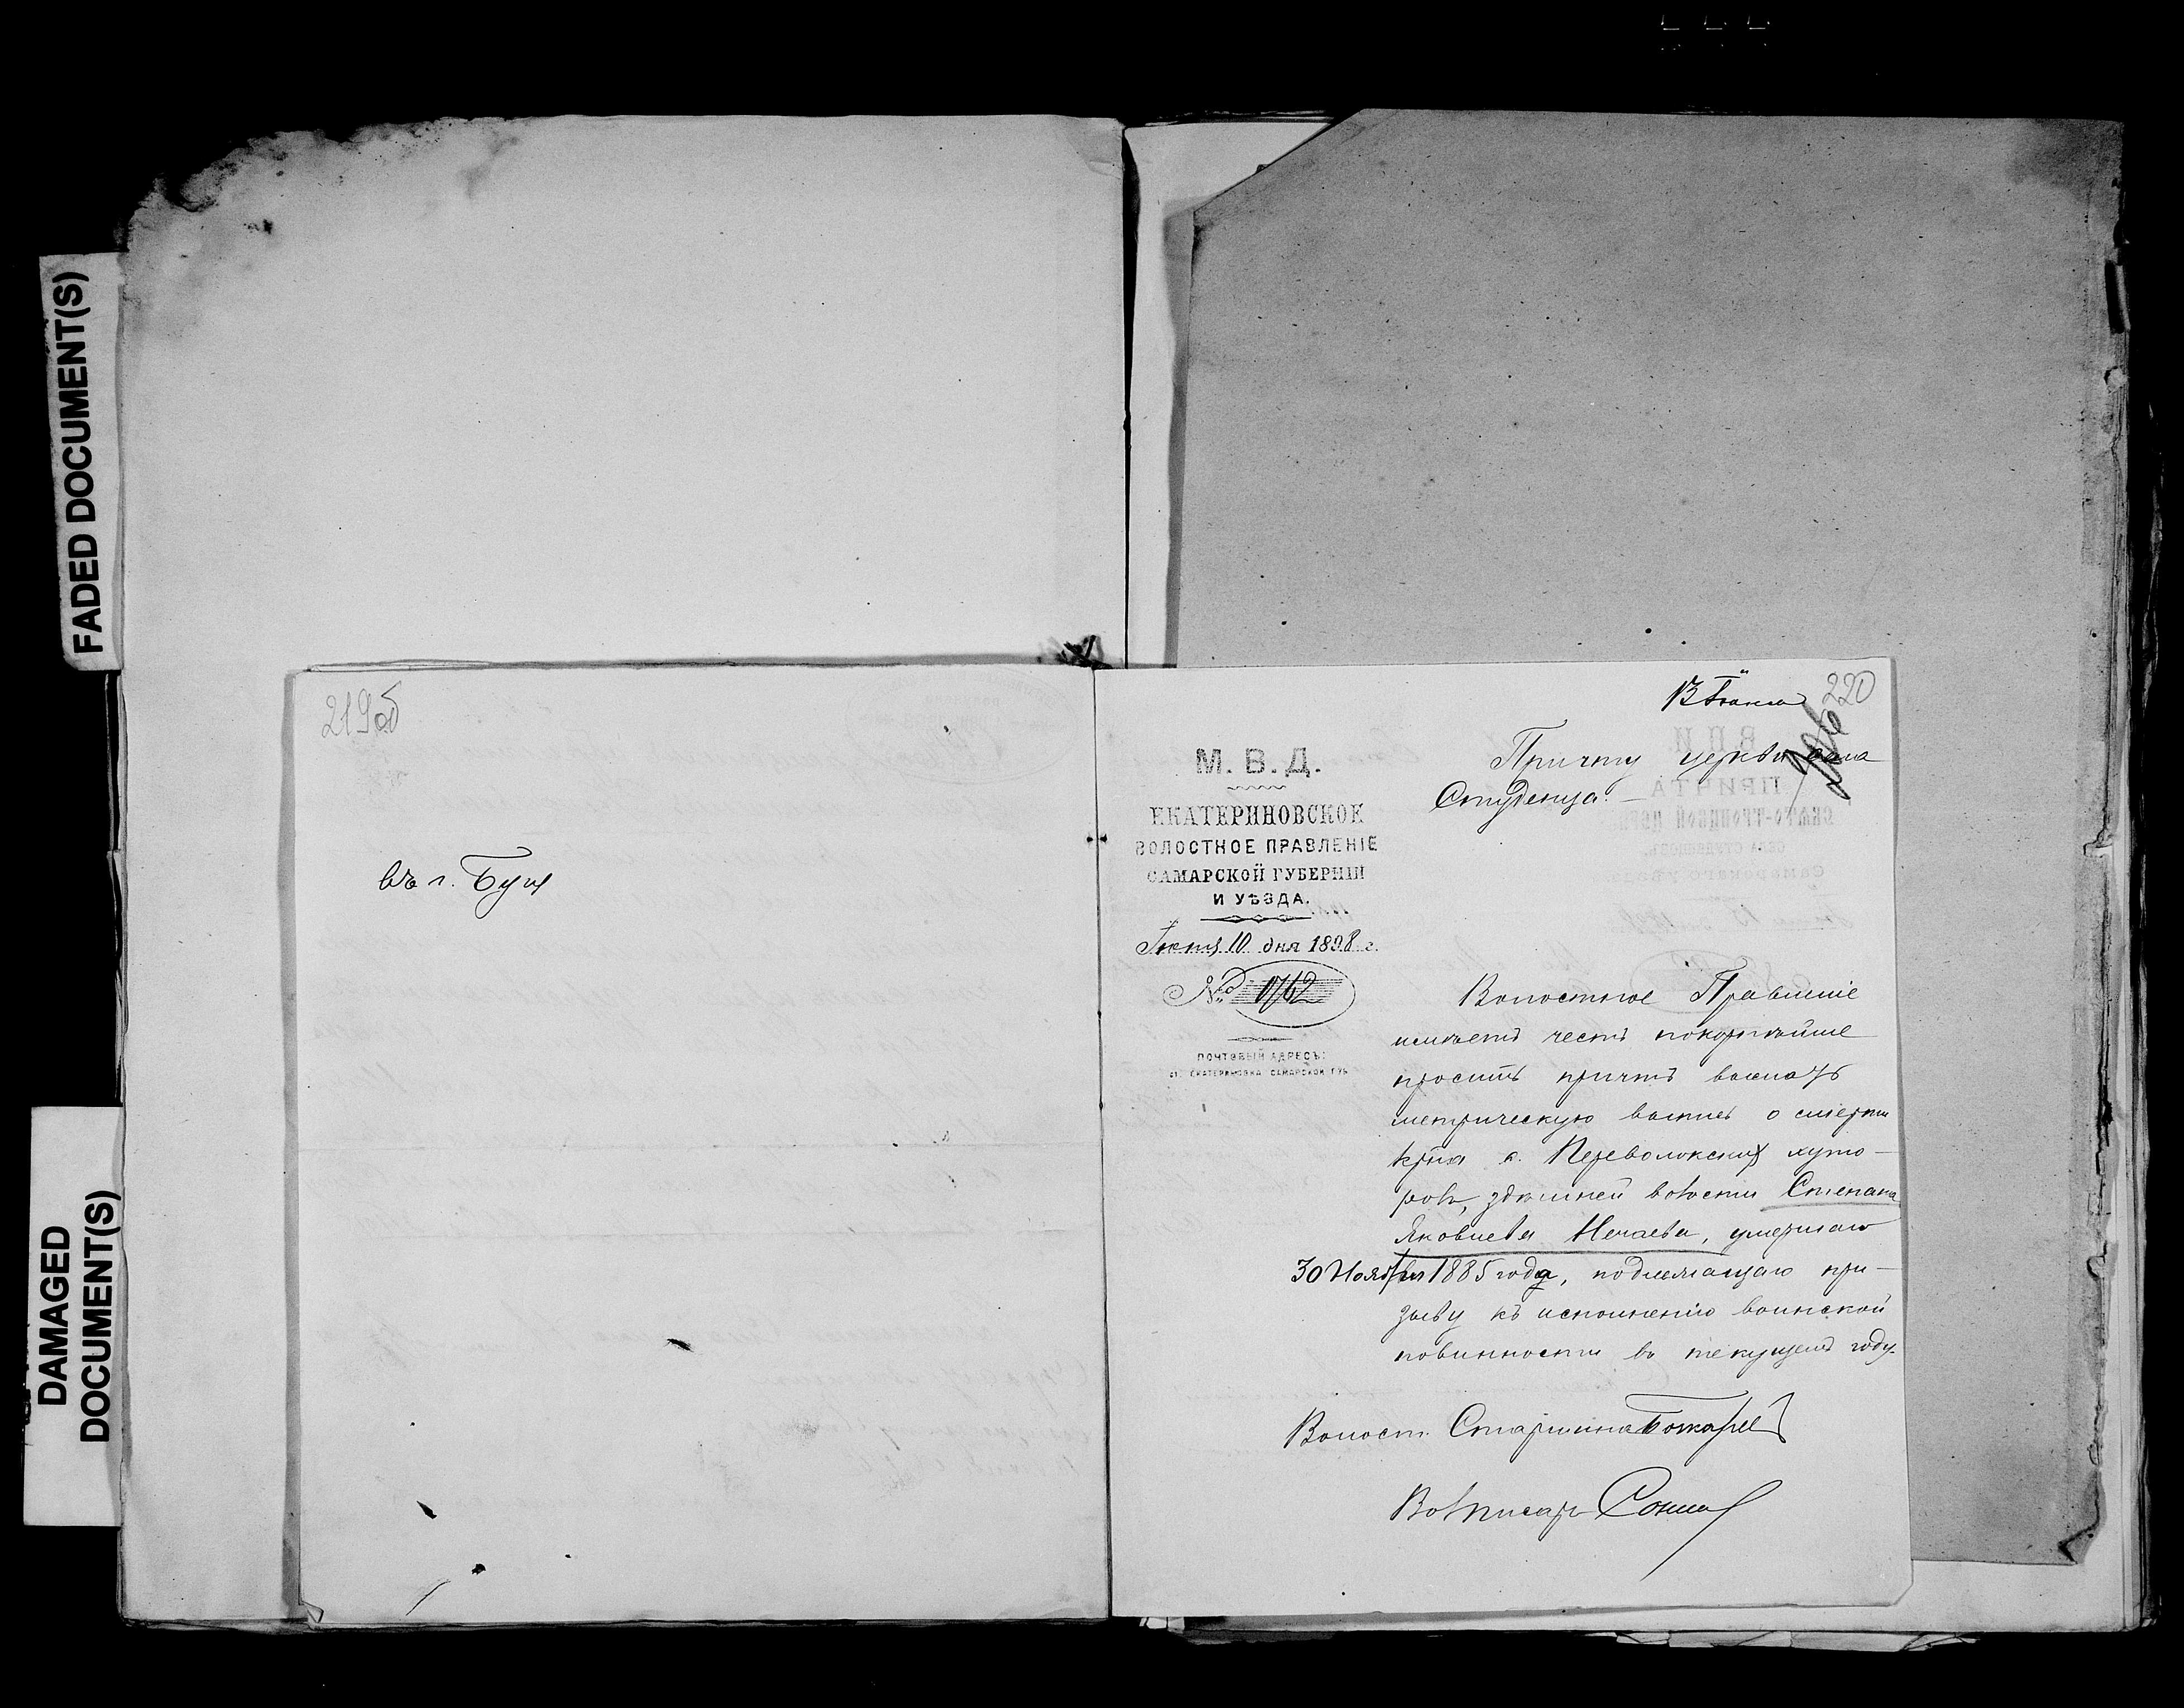 FADED DOCUMENT(S)
DAMAGED
DOCUMENT(S)
219об
въ г. Буз
220
М. В. Д.
ЕКАТЕРИНОВСКОЕ
ВОЛОСТНОЕ ПРАВЛЕНІЕ
САМАРСКОЙ ГУБЕРНІИ
И УѢЗДА.
10 дня 1898 г.
№ 1762
ПОЧТОВЫЙ АДРЕСЪ:
ст. ЕКАТЕРИНОВКА САМАРСКОЙ ГУБ.
Причту церкви села
Студенца.
Волостное Правленіе
имѣетъ честь покорнѣйше
просить причтъ выслать
метрическую выпись о смерти
кр-на с. Переволокскихъ хуто-
ровъ, здѣшней волости Степана
Яковлева Нечаева, умершаго
30 Ноября 1885 года, подлежащаго при-
зыву къ исполненію воинской
повинности въ текущемъ году.
Волост. Старшина
Вол писарь